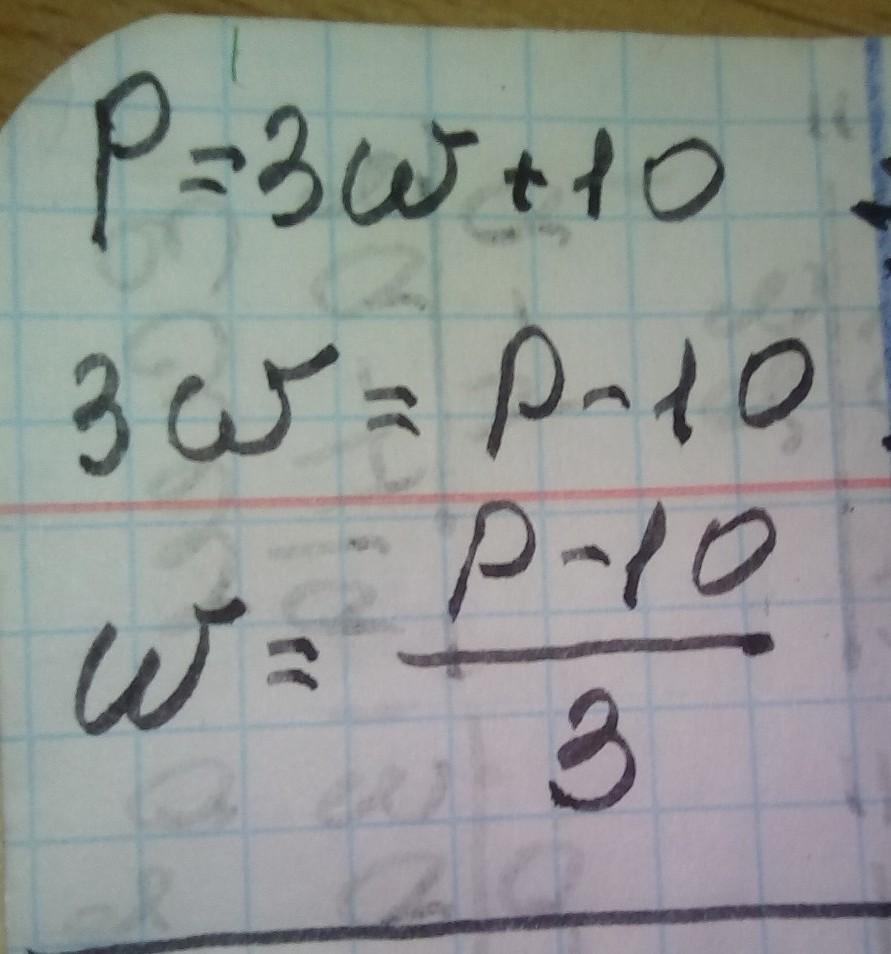 P=3w+10
3w=P-10
w=P-10
3